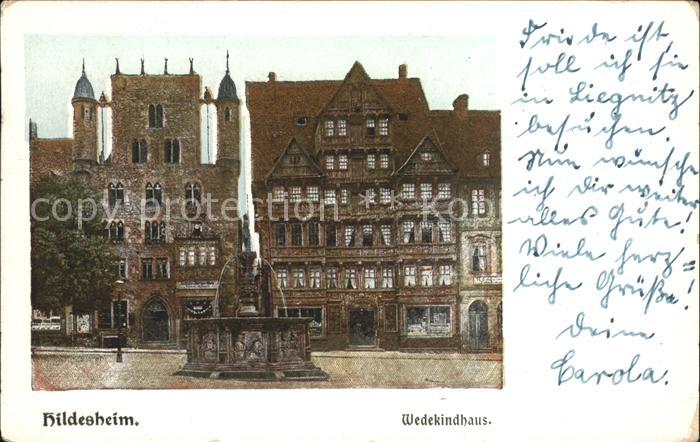 Friede ist,
soll ich sie
in Liegnitz
besuchen.
Nun wünsche
ich Dir weiter
alles Gute!
Viele herz=
liche Grüße!
Deine
Carola.
copyright protection
Hildesheim.
Wedekindhaus.